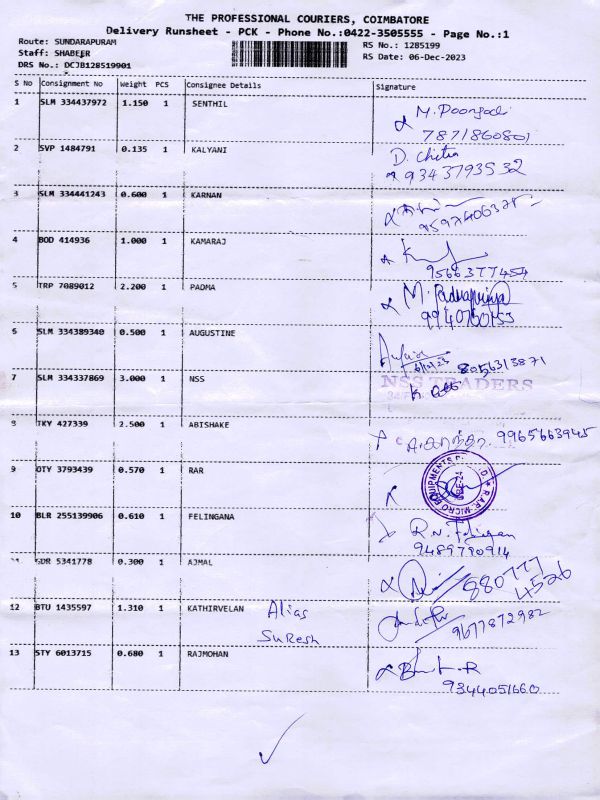 THE PROFESSIONAL COURIERS, COIMBATORE
Delivery Runsheet - PCK - Phone No.:0422-3505555 - Page No.:1
Route: SUNDARAPURAM
Staff: SHABEER
DRS No.: DCJB128519901
RS No.: 1285199
RS Date: 06-Dec-2023
S No Consignment No Weight PCS Consignee Details Signature
1 SLM 334437972 1.150 1 SENTHIL
7871860801
2 SVP 1484791 0.135 1 KALYANI D. Chitra
9343793532
3 SLM 334441243 0.600 1 KARNAN
4 BOD 414936 1.000 1 KAMARAJ
9566377454
5 TRP 7089012 2.200 1 PADMA M. Padmapriya
6 SLM 334389340 0.500 1 AUGUSTINE
6/12/23 8056313871
7 SLM 334337869 3.000 1 NSS
NSS TRADERS
8 TKY 427339 2.500 1 ABISHAKE 9965663945
9 OTY 3793439 0.570 1 RAR
10 BLR 255139906 0.610 1 FELINGANA
9489790914
11 GDR 5341778 0.300 1 AJMAL
880777
4526
12 BTU 1435597 1.310 1 KATHIRVELAN Alias
Suresh
9677872982
13 STY 6013715 0.680 1 RAJMOHAN
9344051660